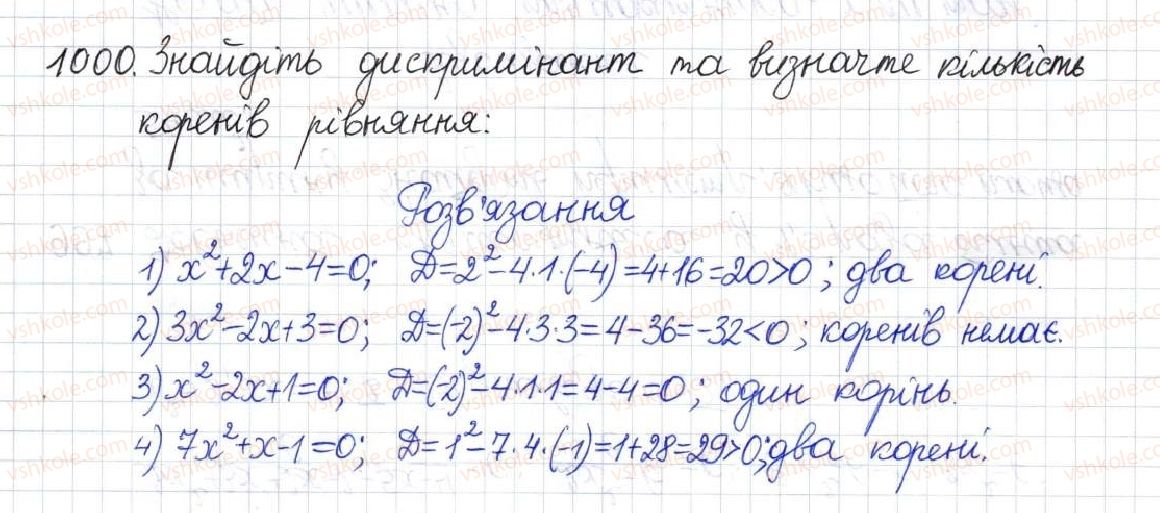 1000. Знайдіть дискримінант та визначте кількість
коренів рівняння:
Розв'язання
1) x²+2x-4=0; Д=2²-4·1·(-4)=4+16=20>0; два корені.
2) 3x²-2x+3=0; Д=(-2)²-4·3·3=4-36=-32<0; коренів немає.
3) x²-2x+1=0; Д=(-2)²-4·1·1=4-4=0; один корінь.
4) 7x²+x-1=0; Д=1²-7·4·(-1)=1+28=29>0; два корені.